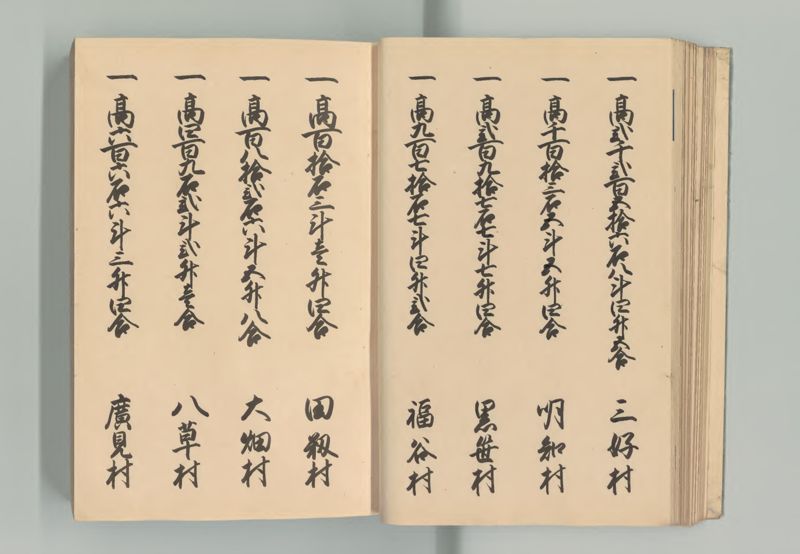 一高弐千弐百五拾六石八斗四升五合 三好村
一高千百拾三石五斗五升四合 明知村
一高弐百九拾七石七斗七升四合 黒笹村
一高九百七拾石七斗四升弐合 福谷村
一高百拾石三斗壱升四合 田籾村
一高百八拾弐石六斗五升八合 大畑村
一高四百九石弐斗弐升壱合 八草村
一高六百六石六斗三升四合 廣見村